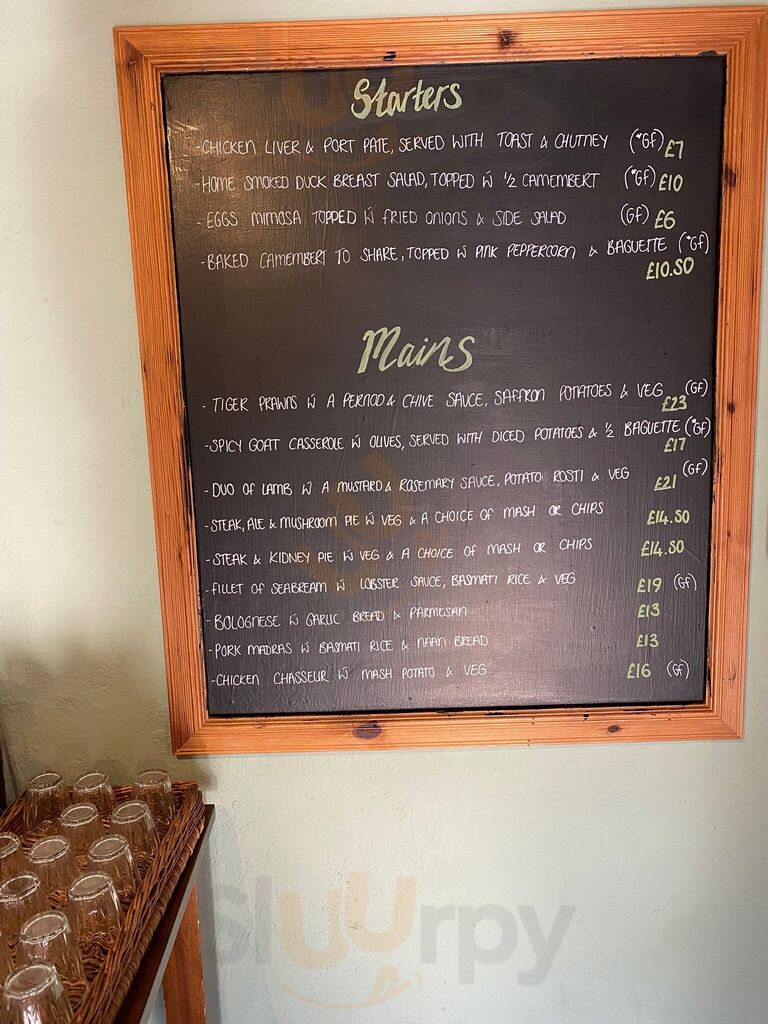 Starters
-CHICKEN LIVER & PORT PATE, SERVED WITH TOAST & CHUTNEY (*GF) £7
-HOME SMOKED DUCK BREAST SALAD, TOPPED W ½ CAMEMBERT (*GF) £10
-EGGS MIMOSA TOPPED W FRIED ONIONS & SIDE SALAD (GF) £6
-BAKED CAMEMBERT TO SHARE, TOPPED W PINK PEPPERCORN & BAGUETTE (*GF)
£10.50
Mains
- TIGER PRAWNS W A PERNOD & CHIVE SAUCE, SAFFRON POTATOES & VEG (GF)
£23
-SPICY GOAT CASSEROLE W OLIVES, SERVED WITH DICED POTATOES & ½ BAGUETTE (*GF)
£17
-DUO OF LAMB W A MUSTARD & ROSEMARY SAUCE, POTATO ROSTI & VEG £21 (GF)
-STEAK, ALE & MUSHROOM PIE W VEG & A CHOICE OF MASH OR CHIPS £14.50
-STEAK & KIDNEY PIE W VEG & A CHOICE OF MASH OR CHIPS £14.50
-FILLET OF SEABREAM W LOBSTER SAUCE, BASMATI RICE & VEG £19 (GF)
-BOLOGNESE W GARLIC BREAD & PARMESAN £13
-PORK MADRAS W BASMATI RICE & NAAN BREAD £13
-CHICKEN CHASSEUR W MASH POTATO & VEG £16 (GF)
sluurpy